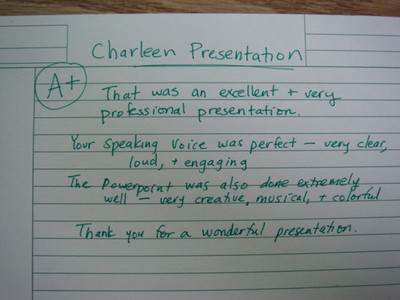 Charleen Presentation
A+
That was an excellent + very
professional presentation.
Your speaking voice was perfect — very clear,
loud, + engaging
The Powerpoint was also done extremely
well — very creative, musical, + colorful
Thank you for a wonderful presentation.